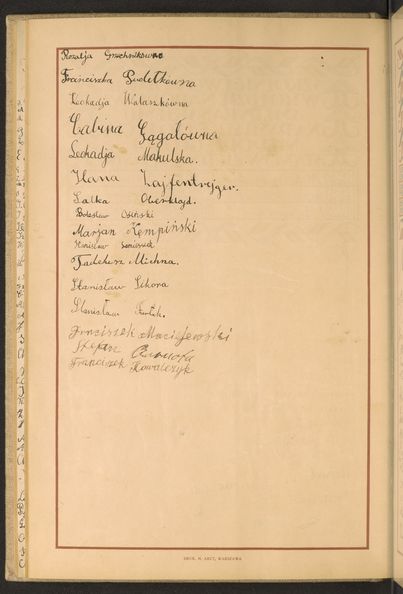 Rozalja Grzechnikówna
Franciszka Pudełkówna
Lechadja Wałaszkówna
Sabina Gągałówna
Lechadja Makulska.
Hana Zajfentrejger.
Salka Oberklejd.
Bolesław Osiński
Marjan Kempiński
Stanisław
Tadeusz Michna.
Stanisław Sikora
Stanisław
Franciszek Maciejewski
Stefan
Franciszek Kowalczyk
DRUK. M. ARCT, WARSZAWA